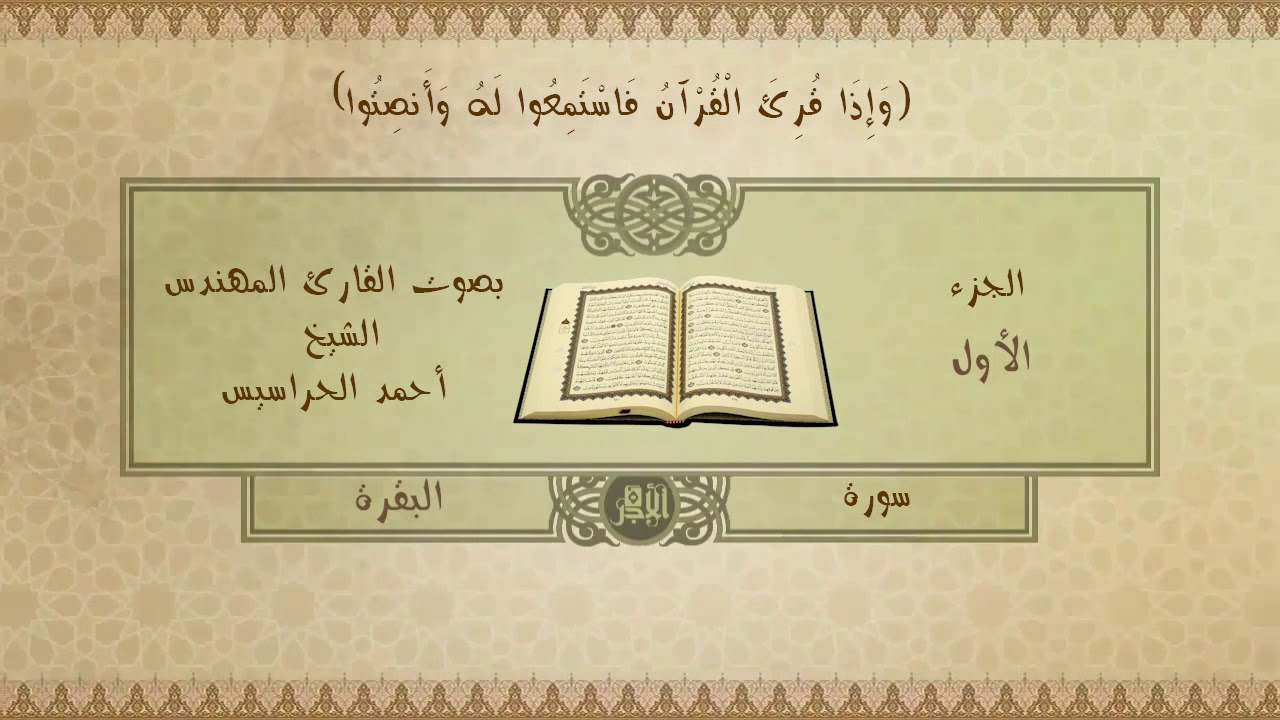 (وَإِذَا قُرِئَ الْقُرْآنُ فَاسْتَمِعُوا لَهُ وَأَنصِتُوا)
الجزء
الأول
بصوت القارئ المهندس
الشيخ
أحمد الحراسيس
سورة
البقرة